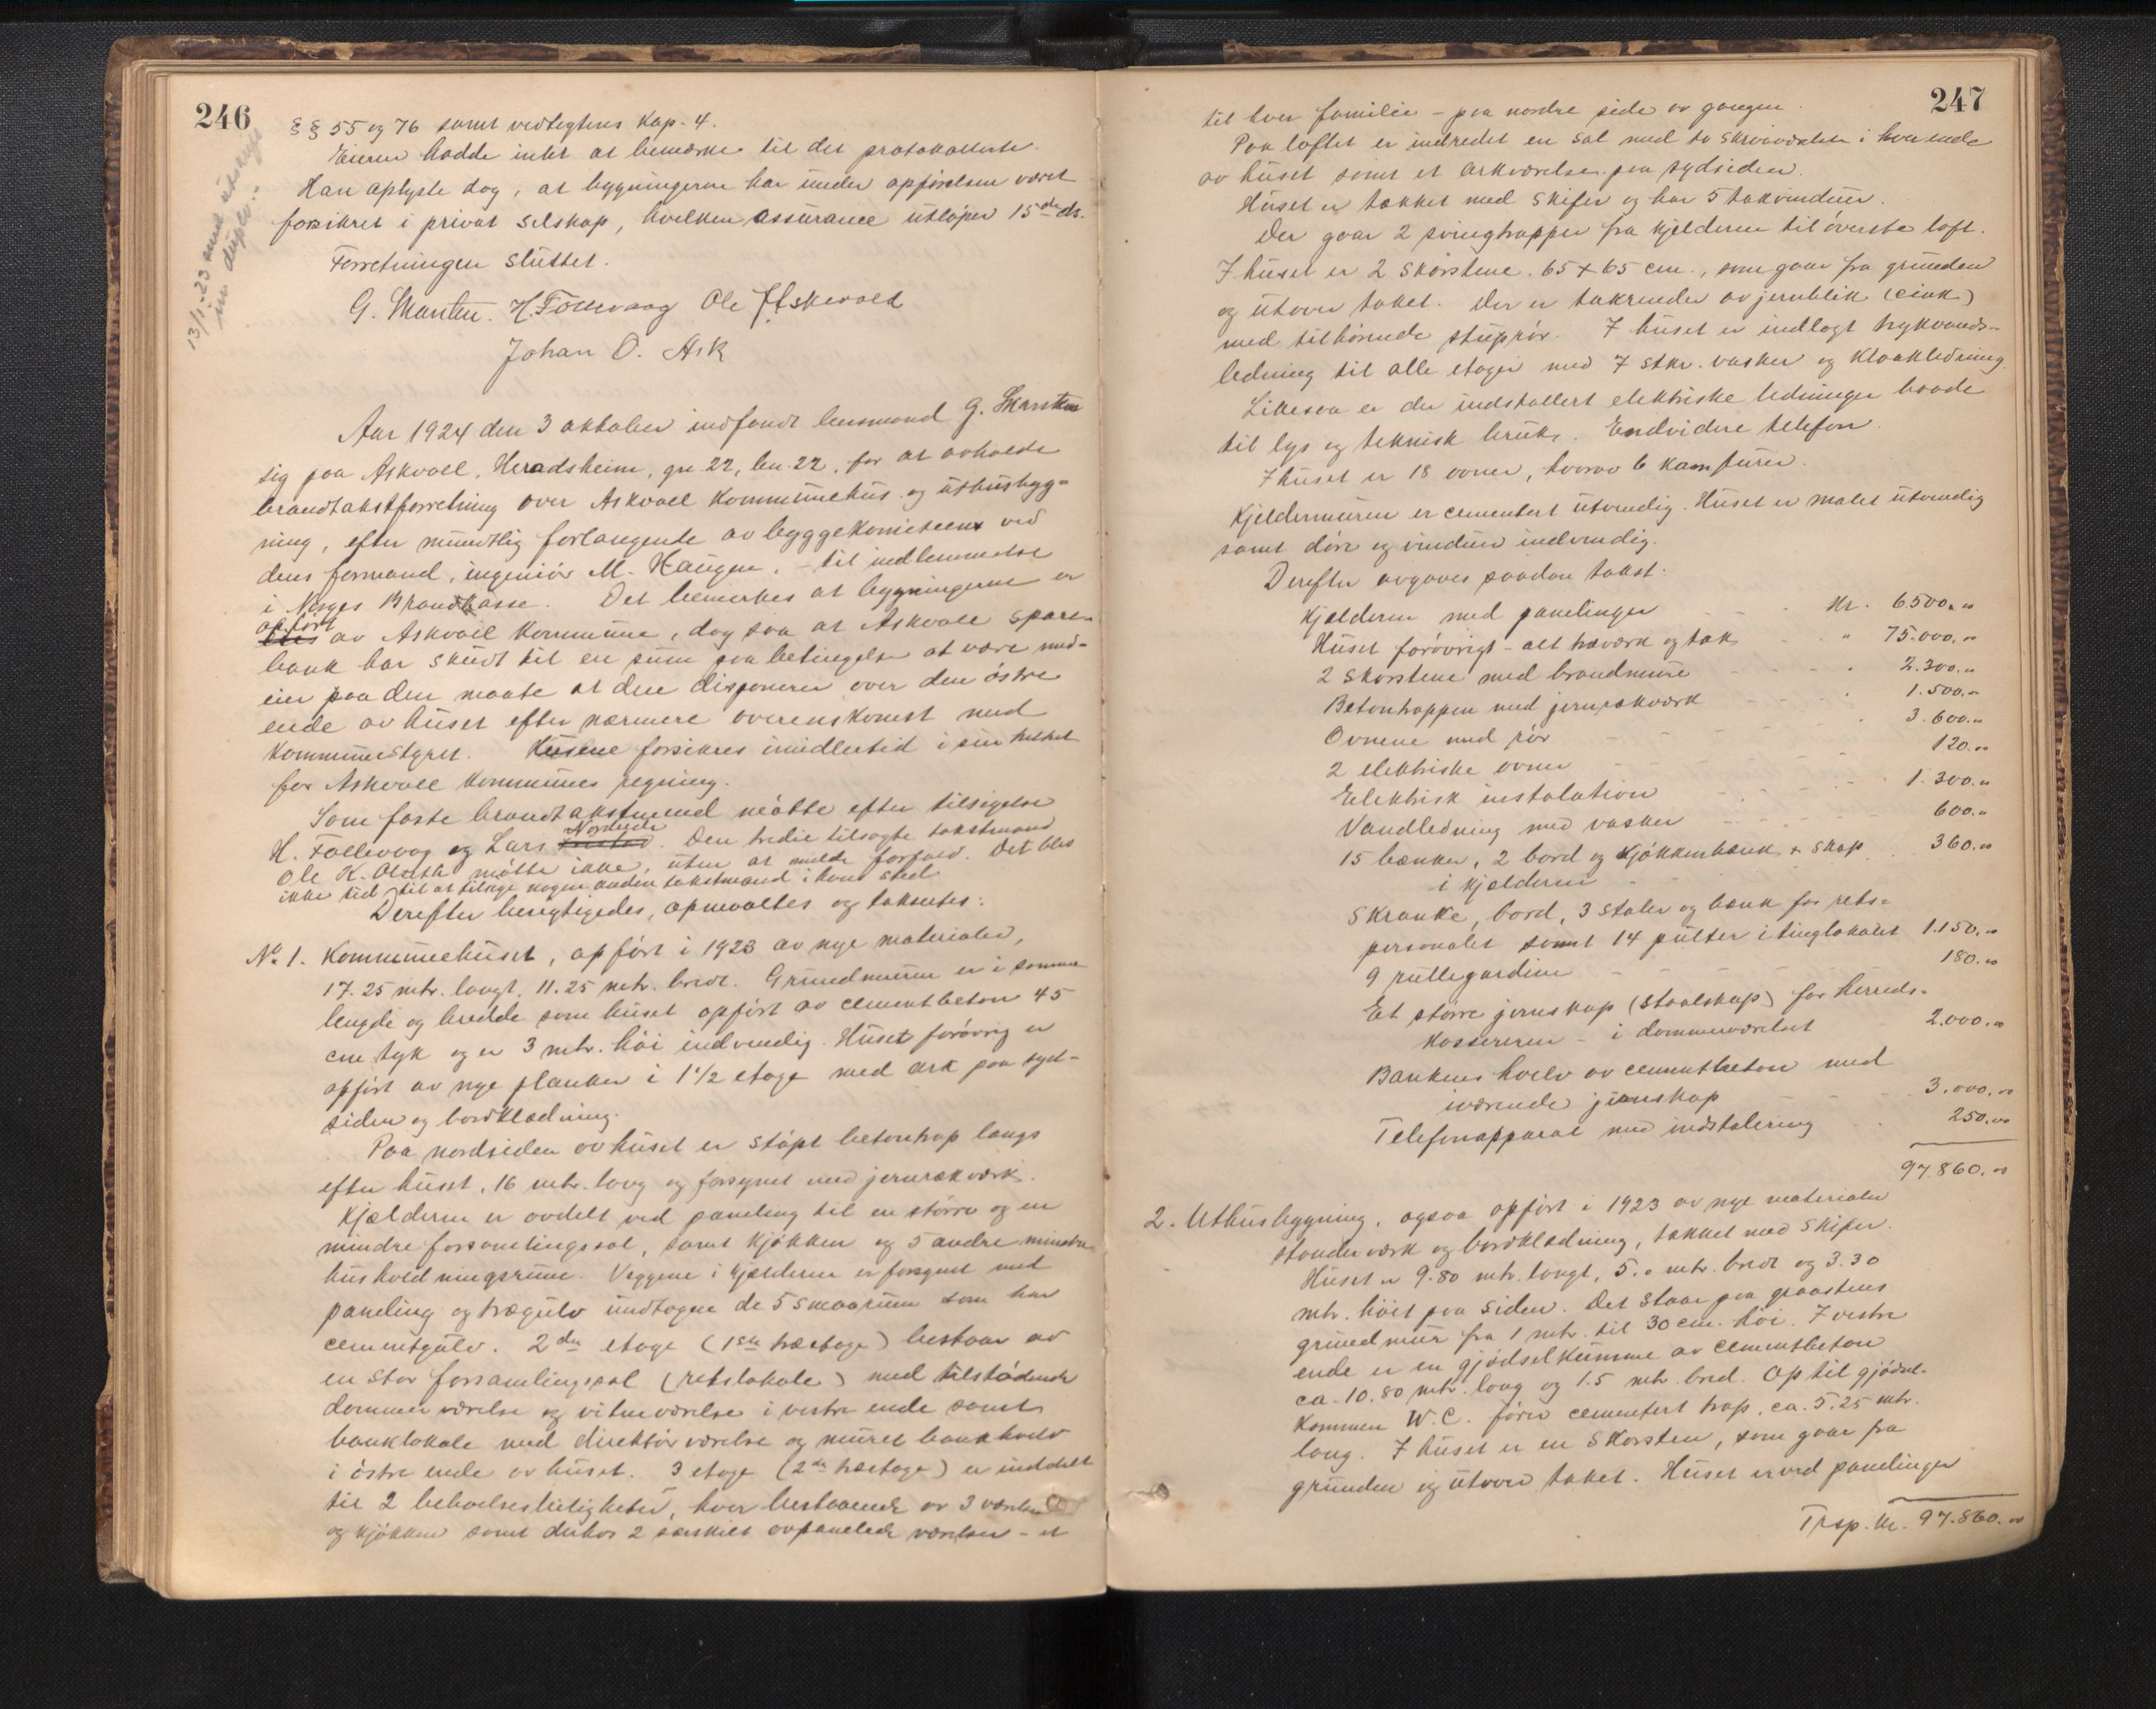 246
§ § 55 og 76 samt vedtegtens kap. 4.
Eieren hadde intet at bemerke til det protokollerte.
Han oplyste dog, at bygningerne har under opførelsen været
forsikret i privat selskap, hvilken assurance utløper 15de ds.
Forretningen sluttet.
G. H. Follevaag Ole Askevold
Johan O. Ask
13/1-23 send utskrift
in duplo.
Aar 1924 den 3 oktober indfandt lensmand G.
sig paa Askvoll, Heradsheim, gn. 22, bn. 22, for at avholde
brandtakstforretning over Askvoll kommunehus og uthusbyg-
ning, efter mundtlig forlangende av byggekomiteens ved
dens formand, ingeniør M. Haugen, - til indlemmelse
i Norges Brandkasse. Det bemerkes at bygningerne er
opført
av Askvoll kommune, dog saa at Askvoll spare-
bank har skudt til en sum paa betingelse at være med-
eier paa den maate at den disponerer over den østre
ende av huset efter nærmere overenskomst med
kommunestyret. Husene forsikres imidlertid i sin helhet
for Askvoll kommunes regning.
Som faste brandtakstmænd møtte efter tilsigelse
H. Follevaag og Lars Nordeide. Den tredie tilsagte takstmand
Ole K. møtte ikke, uten at melde forfald. Det blev
ikke tid til at tilsige nogen anden takstmand i hans sted.
Derefter besigtigedes, opmaaltes og taksertes:
No. 1. Kommunehuset, opført i 1923 av nye materialer,
17.25 mtr. langt, 11.25 mtr. bredt. Grundmuren er i samme
lengde og bredde som huset opført av cementbeton 45
cm tyk og er 3 mtr. høi indvendig. Huset forøvrig er
opført av nye planker i 1 1/2 etage med ark paa syd-
siden og bordklædning.
Paa nordsiden av huset er støpt betontrap langs
efter huset, 16 mtr. lang og forsynet med jernrækverk.
Kjælderen er avdelt ved paneling til en større og en
mindre forsamlingssal, samt kjøkken og 5 andre mindre
husholdningsrum. Veggene i kjælderen er forsynet med
paneling og trægulv undtagen de 5 smaarum som har
cementgulv. 2den etage (1ste træetage) bestaar av
en stor forsamlingssal (retslokale) med tilstødende
dommerværelse og vitneværelse i vestre ende samt
banklokale med direktørværelse og muret bankhvelv
i østre ende av huset. 3 etage (2de træetage) er inddelt
til 2 beboelsesleiligheter, hver bestaaende av 3 værelser
og kjøkken samt derhos 2 særskilt avpanelede værelser - et
247
til hver familie - paa nordre side av gangen.
Paa loftet er indredet en sal med to skraaværelser i hver ende
av huset samt et arkværelse paa sydsiden.
Huset er tækket med skifer og har 5 takvinduer.
Der gaar 2 svingtrapper fra kjelderen til øverste loft.
I huset er 2 skorstene. 65 x 65 cm., som gaar fra grunden
og utover taket. Der er takrender av jernblik (cink)
med tilhørende stuprør. I huset er indlagt trykvands-
ledning til alle etager med 7 stkr. vasker og kloakledning.
Likesaa er der indstallert elektriske ledninger baade
til lys og teknisk bruk. Endvidere telefon.
I huset er 18 ovner, hvorav 6 kamfurer.
Kjeldermuren er cementert utvendig. Huset er malet utvendig
samt døre og vinduer indvendig.
Derefter avgaves saadan takst:
Kjelderen med panelinger - - Kr. 6500.00
Huset forøvrigt - alt træværk og tak - " 75.000.00
2 skorstene med brandmure - - - " 2.300.00
Betontrappen med jernrækværk - - - " 1.500.00
Ovnene med rør - - - - 3.600.00
2 elektriske ovner - - - - 120.00
Elektrisk instalation - - - - 1.300.00
Vandledning med vasker - - - - 600.00
15 bænker, 2 bord og kjøkkenbænk + skap
i kjelderen - - 360.00
Skranke, bord, 3 stoler og bænk for rets-
personalet samt 14 pulter i tinglokalet 1.150.00
9 rullegardiner - - - - 180.00
Et større jernskap (staalskap) for herreds-
kassereren - i dommerværelset 2.000.00
Bankens hvelv av cementbeton med
iværende jernskap - - 3.000.00
Telefonapparat med indstalering - 250.00
97.860.00
2. Uthusbygning, ogsaa opført i 1923 av nye materialer
stenderværk og bordklædning, tækket med skifer.
Huset er 9.80 mtr. langt, 5.0 mtr. bredt og 3.30
mtr. høit paa siden. Det staar paa graastens
grundmur fra 1 mtr. til 30 cm. høi. I vestre
ende er en gjødselkumme av cementbeton
ca. 10.80 mtr. lang og 1.5 mtr. bred. Op til gjødsel-
kummen W.C. fører cementert trap, ca. 5.25 mtr.
lang. I huset er en skorsten, som gaar fra
grunden og utover taket. Huset er ved panelinger
Trsp. Kr. 97.860.00